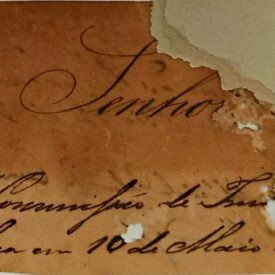 Senhor
Commissão de
em 10 de Maio